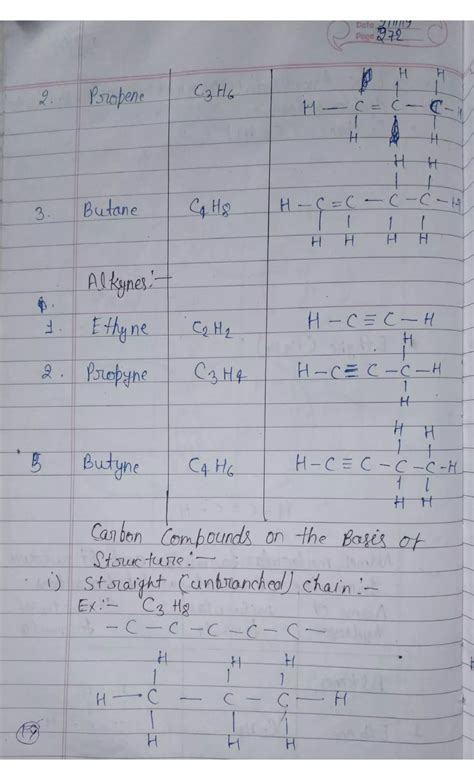 Date
Page 272
2. Propene C3H6
H H
H – C = C – C – H
H H
3. Butane C4H8
H H
H – C = C – C – C – H
H H H H
Alkynes:-
1. Ethyne C2H2 H – C ≡ C – H
2. Propyne C3H4
H
H – C ≡ C – C – H
H
5 Butyne C4H6
H H
H – C ≡ C – C – C – H
H H
Carbon Compounds on the Basis of
Structure:-
i) Straight (unbranched) chain:-
Ex:- C3H8
– C – C – C – C – C –
H H H
H – C – C – C – H
H H H
19